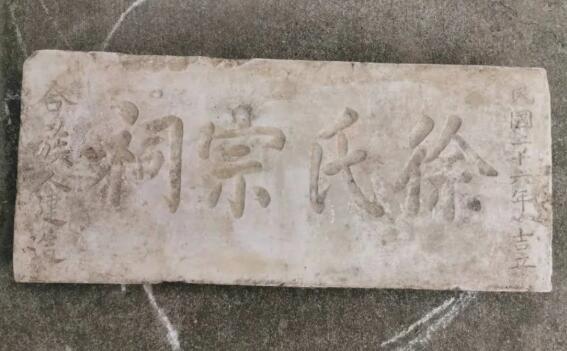 民國二十六年 吉立
徐氏宗祠
合族人建造